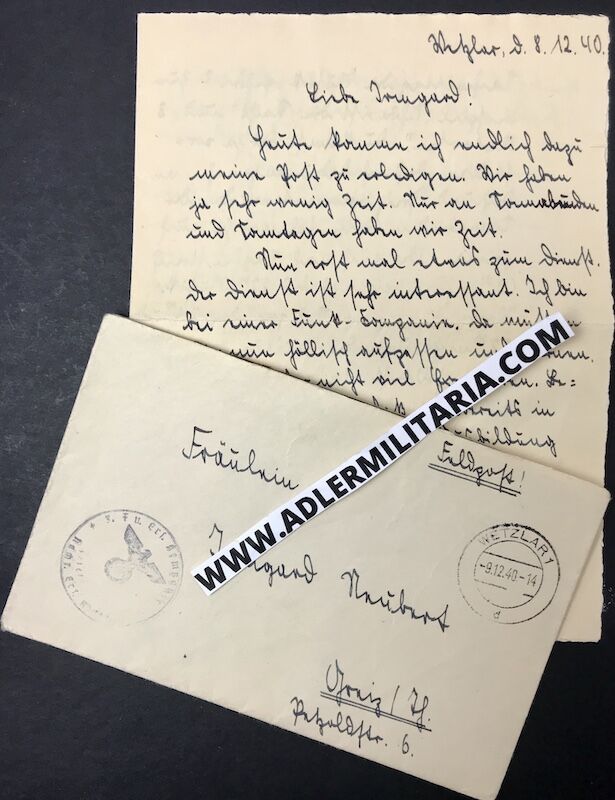 Wetzlar, d. 8.12.40.
Liebe Irmgard!
Heute komme ich endlich dazu
meine Post zu erledigen. Wir haben
ja sehr wenig Zeit. Nur an Sonnabenden
und Sonntagen haben wir Zeit.
Nun erst mal etwas zum Dienst.
Der Dienst ist sehr interessant. Ich bin
bei einer Funk-Companie. Da müssen
nun höllisch aufpassen und
nicht viel
bereits in
Ausbildung
WWW.ADLERMILITARIA.COM
Feldpost!
Fräulein
Irmgard Neubert
Greiz / Th.
Petzoldstr. 6.
WETZLAR 1
-9.12.40-14
d